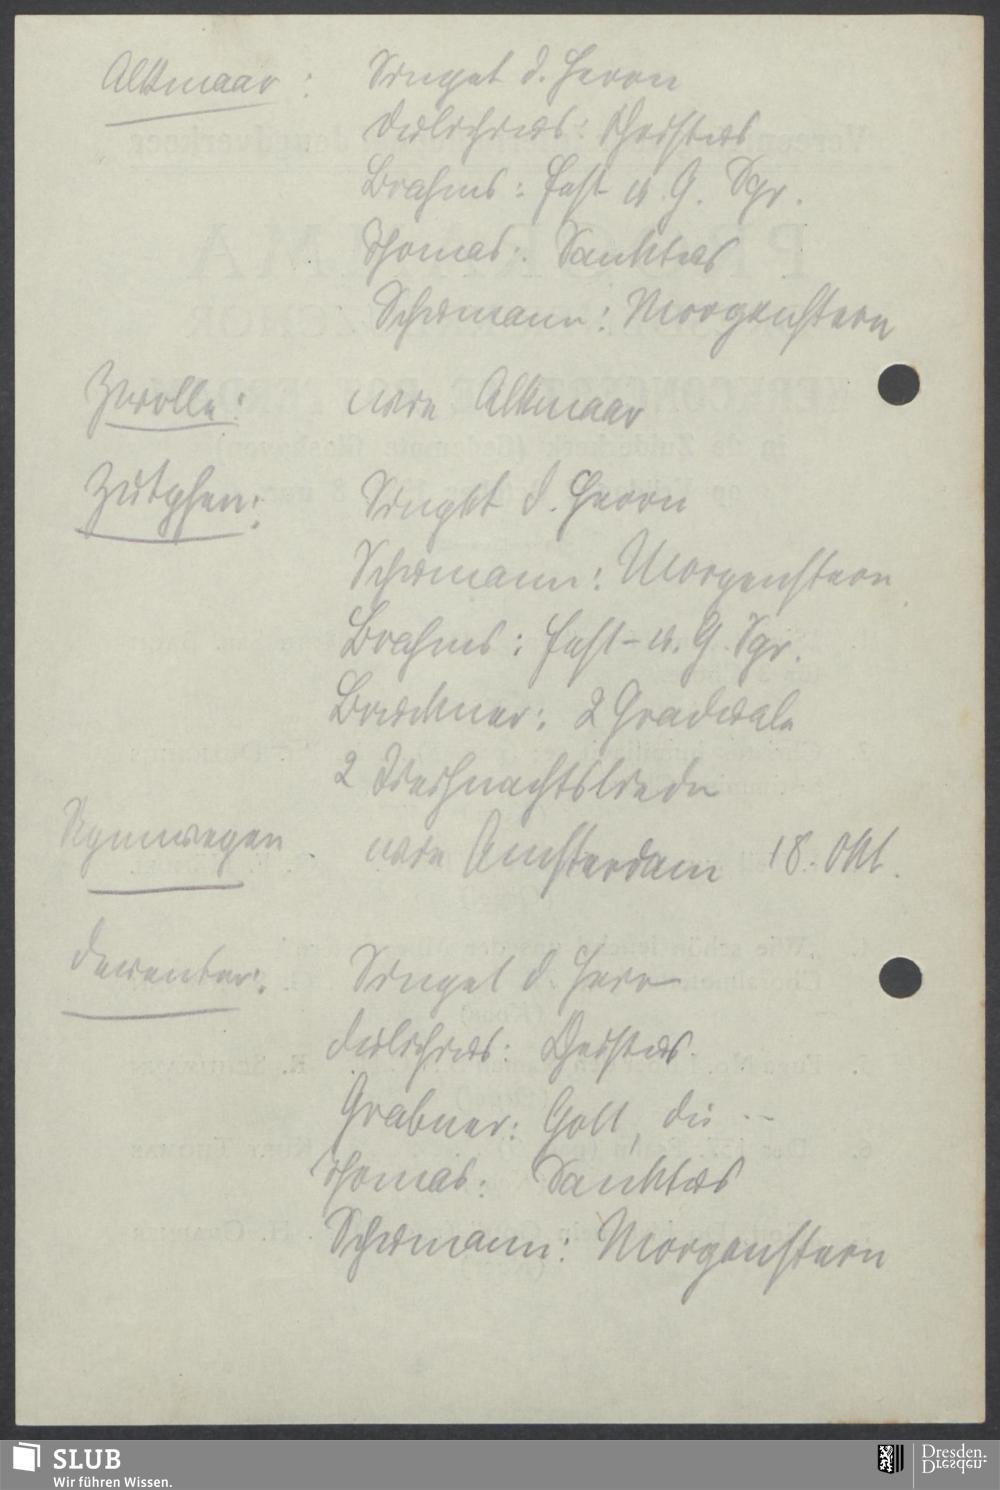 Alkmaar : Singet d. Herrn
Dulichius: Christus
Brahms: Fest u. G. Spr.
Thomas: Sanktus
Schumann: Morgenstern
Zwolle: wie Alkmaar
Zutphen: Singet d. Herrn
Schumann: Morgenstern
Brahms: Fest- u. G. Spr.
Bruckner: 2 Graduale
2 Weihnachtslieder
Nymwegen wie Amsterdam 18. Okt.
Deventer: Singet d. Herrn
Dulichius: Christus
Grabner: Gott, du ---
Thomas: Sanktus
Schumann: Morgenstern
SLUB
Wir führen Wissen.
Dresden.